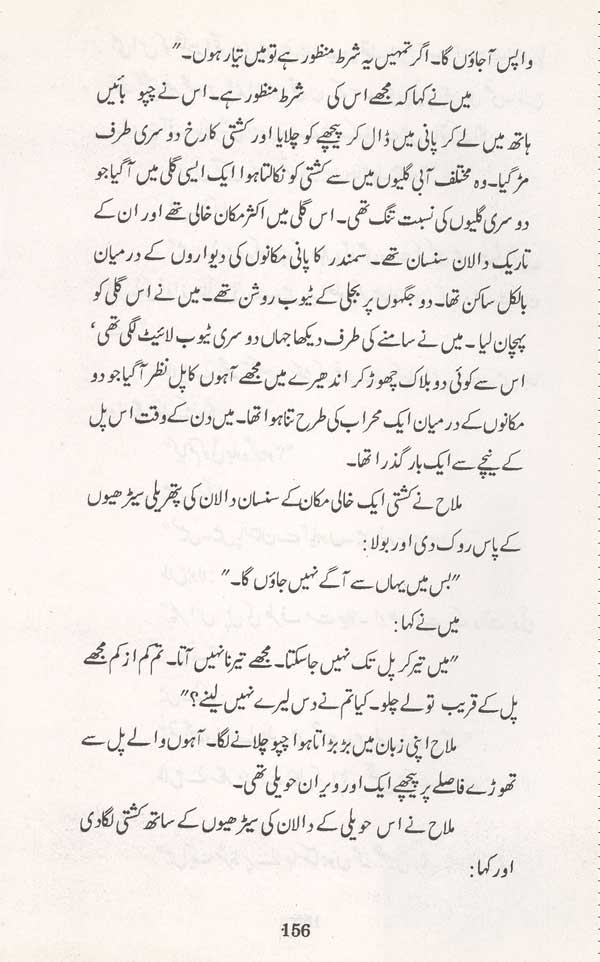 واپس آجاؤں گا۔ اگر تمہیں یہ شرط منظور ہے تو میں تیار ہوں۔"
میں نے کہا کہ مجھے اس کی شرط منظور ہے۔ اس نے چپو بائیں
ہاتھ میں لے کر پانی میں ڈال کر پیچھے کو چلایا اور کشتی کا رخ دوسری طرف
مڑ گیا۔ وہ مختلف آبی گلیوں میں سے کشتی کو نکالتا ہوا ایک ایسی گلی میں آگیا جو
دوسری گلیوں کی نسبت تنگ تھی۔ اس گلی میں اکثر مکان خالی تھے اور ان کے
تاریک دالان سنسان تھے۔ سمندر کا پانی مکانوں کی دیواروں کے درمیان
بالکل ساکن تھا۔ دو جگہوں پر بجلی کے ٹیوب روشن تھے۔ میں نے اس گلی کو
پہچان لیا۔ میں نے سامنے کی طرف دیکھا جہاں دوسری ٹیوب لائیٹ لگی تھی'
اس سے کوئی دو بلاک چھوڑ کر اندھیرے میں مجھے آہوں کا پل نظر آگیا جو دو
مکانوں کے درمیان ایک محراب کی طرح تنا ہوا تھا۔ میں دن کے وقت اس پل
کے نیچے سے ایک بار گذرا تھا۔
ملاح نے کشتی ایک خالی مکان کے سنسان دالان کی پتھریلی سیڑھیوں
کے پاس روک دی اور بولا:
"بس میں یہاں سے آگے نہیں جاؤں گا۔"
میں نے کہا:
"میں تیر کر پل تک نہیں جاسکتا۔ مجھے تیرنا نہیں آتا۔ تم کم از کم مجھے
پل کے قریب تو لے چلو۔ کیا تم نے دس لیرے نہیں لینے؟"
ملاح اپنی زبان میں بڑبڑاتا ہوا چپو چلانے لگا۔ آہوں والے پل سے
تھوڑے فاصلے پر پیچھے ایک اور ویران حویلی تھی۔
ملاح نے اس حویلی کے دالان کی سیڑھیوں کے ساتھ کشتی لگادی
اور کہا:
156